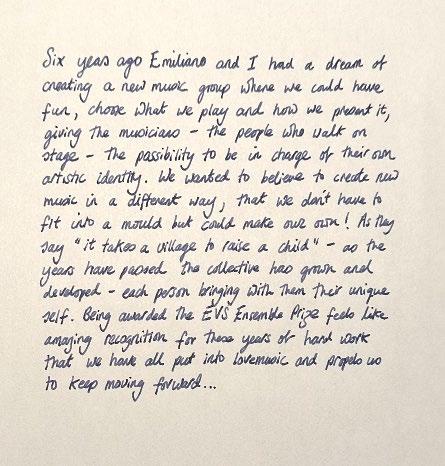 Six years ago Emiliano and I had a dream of
creating a new music group where we could have
fun, choose what we play and how we present it,
giving the musicians - the people who walk on
stage - the possibility to be in charge of their own
artistic identity. We wanted to believe to create new
music in a different way, that we don't have to
fit into a mould but could make our own! As they
say "it takes a village to raise a child" - as the
years have passed the collective has grown and
developed - each person bringing with them their unique
self. Being awarded the EVS Ensemble Prize feels like
amazing recognition for these years of hard work
that we have all put into lovemusic and propels us
to keep moving forward...